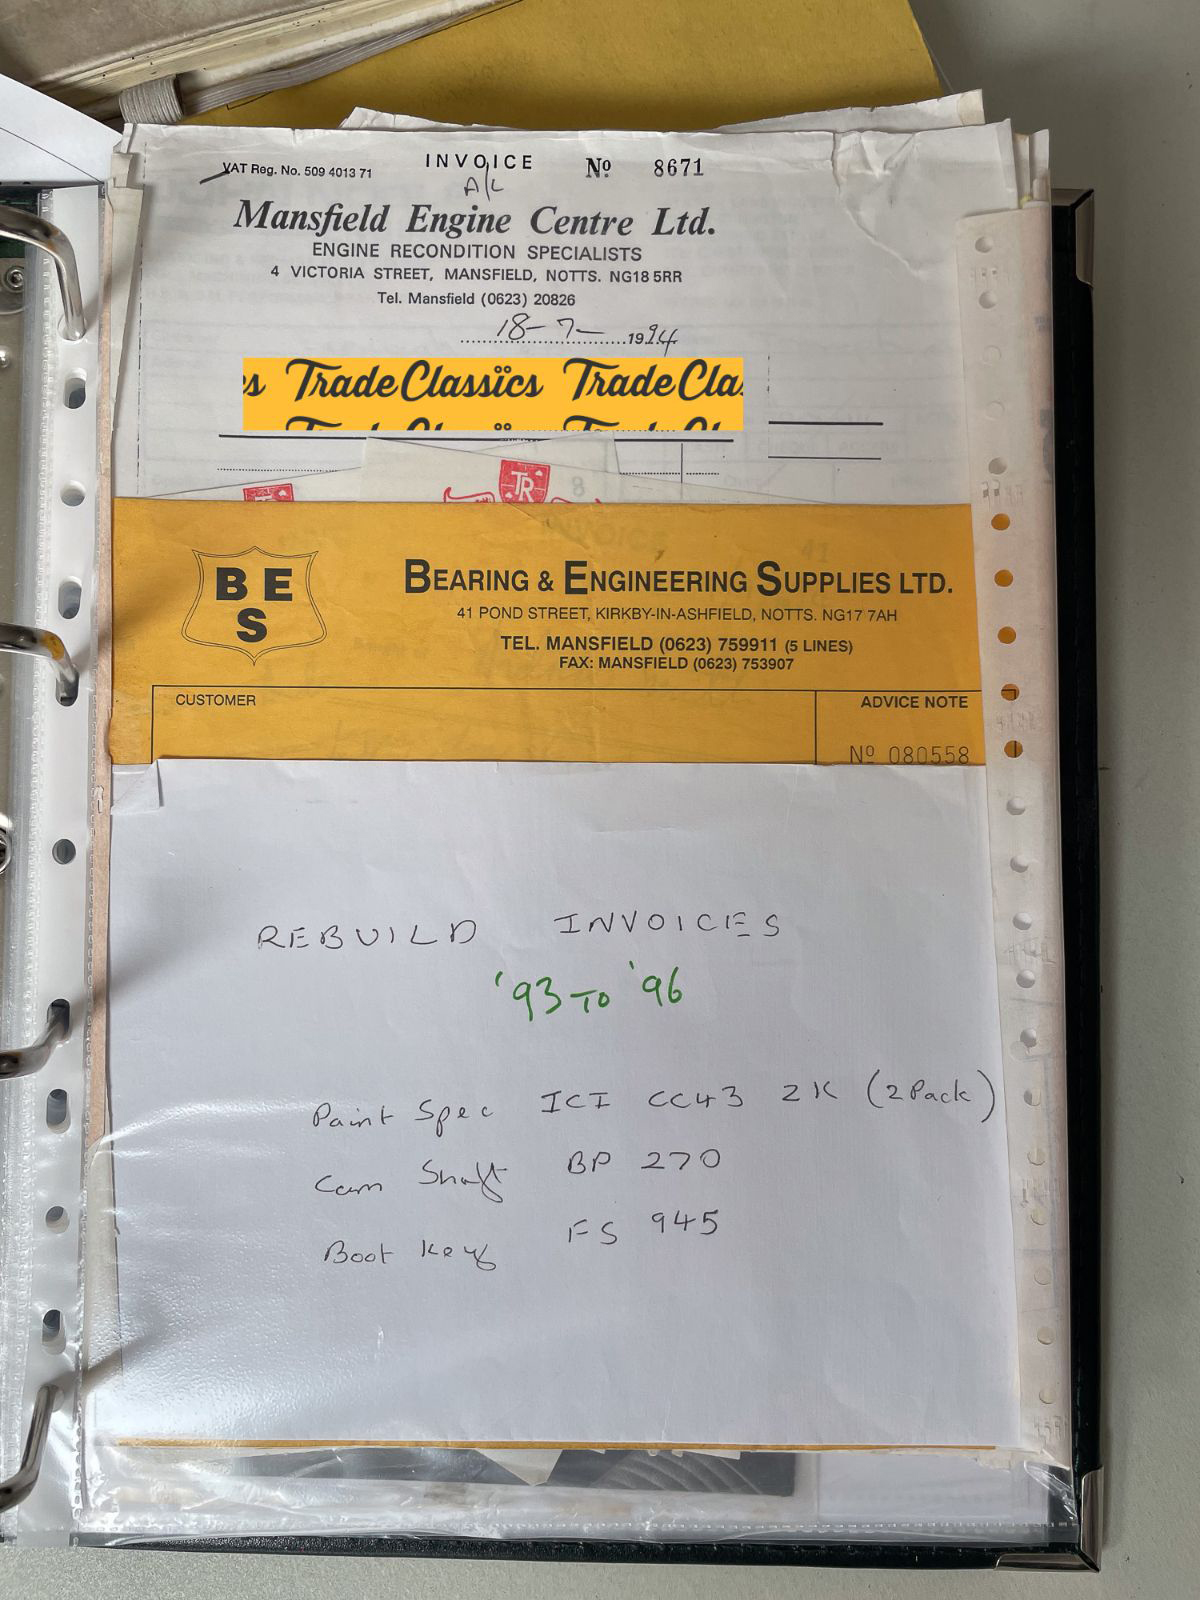 INVOICE Nº 8671
VAT Reg. No. 509 4013 71
A/C
Mansfield Engine Centre Ltd.
ENGINE RECONDITION SPECIALISTS
4 VICTORIA STREET, MANSFIELD, NOTTS. NG18 5RR
Tel. Mansfield (0623) 20826
18-7-1994
Trade Classics Trade Cla
TR
8
BES
BEARING & ENGINEERING SUPPLIES LTD.
41 POND STREET, KIRKBY-IN-ASHFIELD, NOTTS. NG17 7AH
TEL. MANSFIELD (0623) 759911 (5 LINES)
FAX: MANSFIELD (0623) 753907
CUSTOMER
ADVICE NOTE
Nº 080558
REBUILD INVOICES
'93 TO '96
Paint Spec ICI CC43 2K (2Pack)
Cam Shaft BP 270
Boot Key FS 945